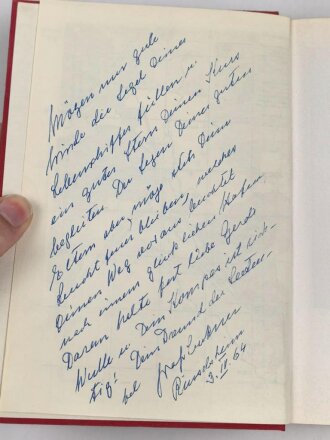 Mögen nur gute
Winde die Segel Deines
Lebensschiffes füllen u.
ein guter Stern Deinen Kurs
begleiten. Der Segen Deiner guten
Eltern aber möge stets Deine
Leucht feuer bleiben, welches
Deinen Weg voraus leuchtet
nach einem glücklichen Hafen.
Daran halte fest liebe Gerda
Dein Kompas ist rich-
tig!
bel Dein Freund der Seeteu-
Graf Luckner
3. IV. 64